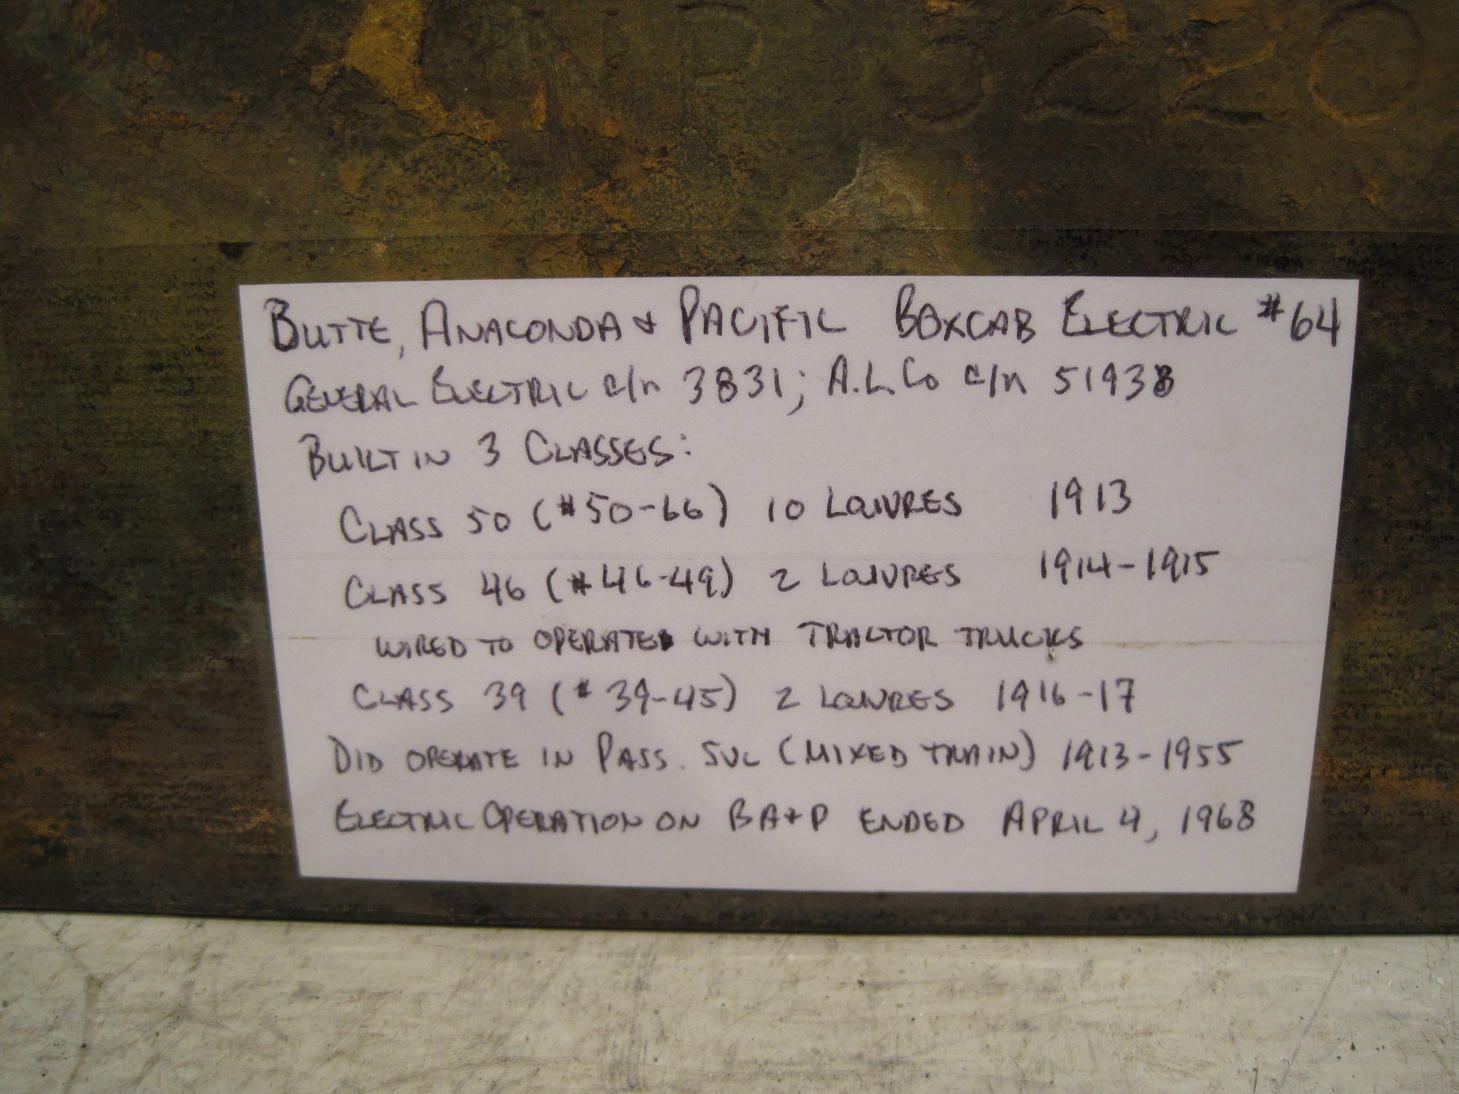 P 3220
BUTTE, ANACONDA & PACIFIC BOXCAB ELECTRIC #64
GENERAL ELECTRIC c/n 3831; A.L.Co c/n 51938
BUILT IN 3 CLASSES:
CLASS 50 (#50-66) 10 LOUVRES 1913
CLASS 46 (#46-49) 2 LOUVRES 1914-1915
WIRED TO OPERATE WITH TRACTOR TRUCKS
CLASS 39 (#39-45) 2 LOUVRES 1916-17
DID OPERATE IN PASS. SVC (MIXED TRAIN) 1913-1955
ELECTRIC OPERATION ON BA&P ENDED APRIL 4, 1968